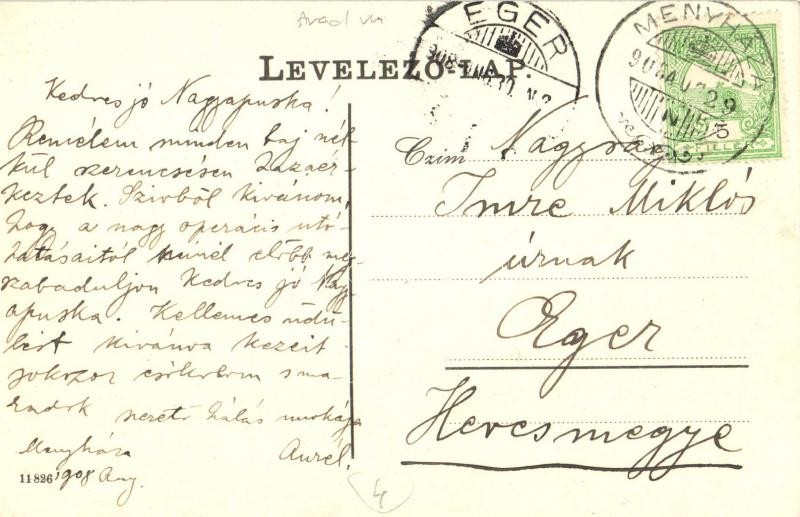 Arad vm
LEVELEZŐ-LAP.
EGER
MENYHÁZA
908 AUG 29
5
FILLÉR
Kedves jó Nagyapuska!
Remélem minden baj nél-
kül szerencsésen hazaér-
keztek. Szivből kivánom,
hogy a nagy operácis utó-
hatásaitól minél előbb meg
szabaduljon Kedves jó Nagy
apuska. Kellemes üdü-
lést kivánva kezeit
sokszor csókolom s ma-
radok szerető hálás unokája
Aurél.
Menyháza
1908 Aug.
11826
Czim Nagyság
Imre Miklós
úrnak
Eger
Hevesmegye
4